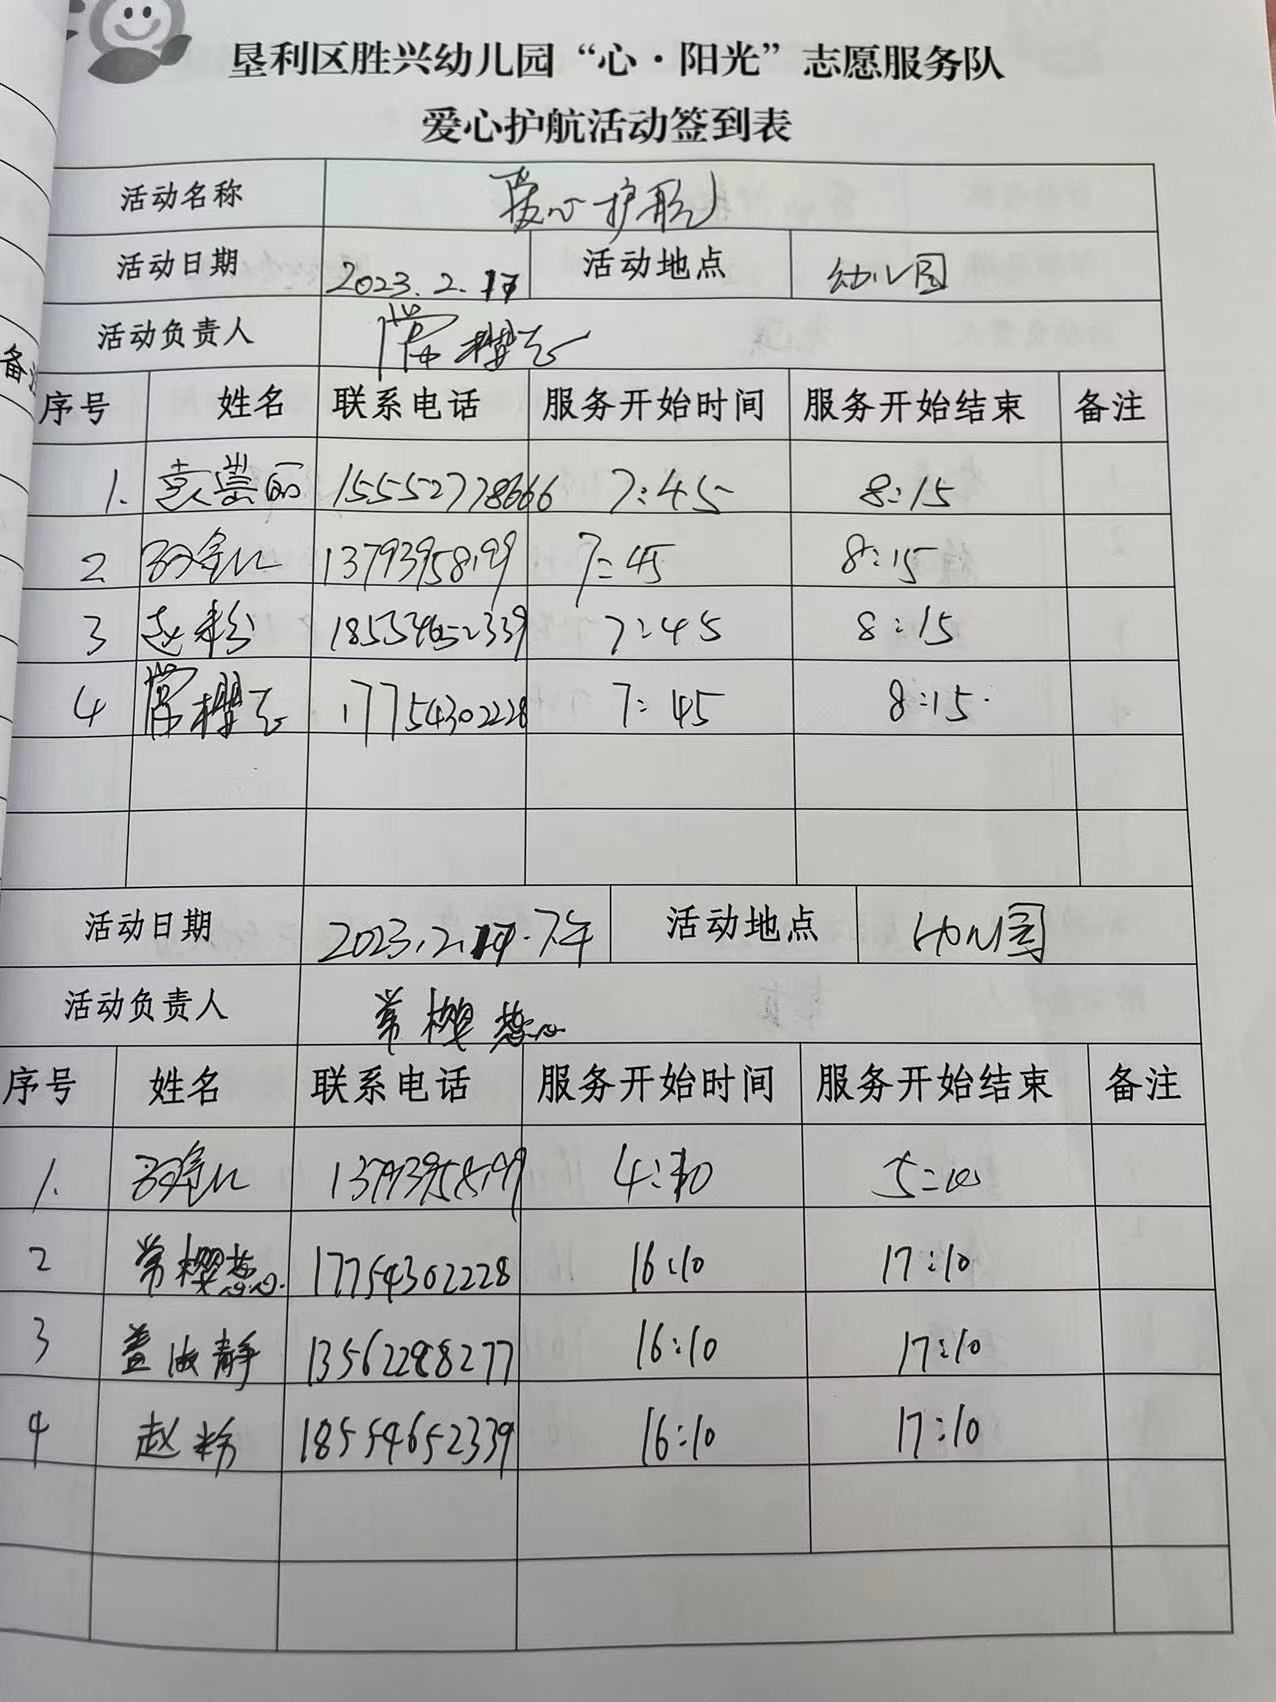 垦利区胜兴幼儿园“心·阳光”志愿服务队
爱心护航活动签到表
活动名称 爱心护航
活动日期 2023.2.17 活动地点 幼儿园
活动负责人 常樱
备注
序号 姓名 联系电话 服务开始时间 服务开始结束 备注
1. 15552778666 7:45 8:15
2 13793958199 7:45 8:15
3 赵粉 18554652339 7:45 8:15
4 常樱 17754302228 7:45 8:15
活动日期 2023.2.17.下午 活动地点 幼儿园
活动负责人 常樱
序号 姓名 联系电话 服务开始时间 服务开始结束 备注
1. 13793958199 4:10 5:10
2 常樱 17754302228 16:10 17:10
3 盖淑静 13562288277 16:10 17:10
4 赵粉 18554652339 16:10 17:10